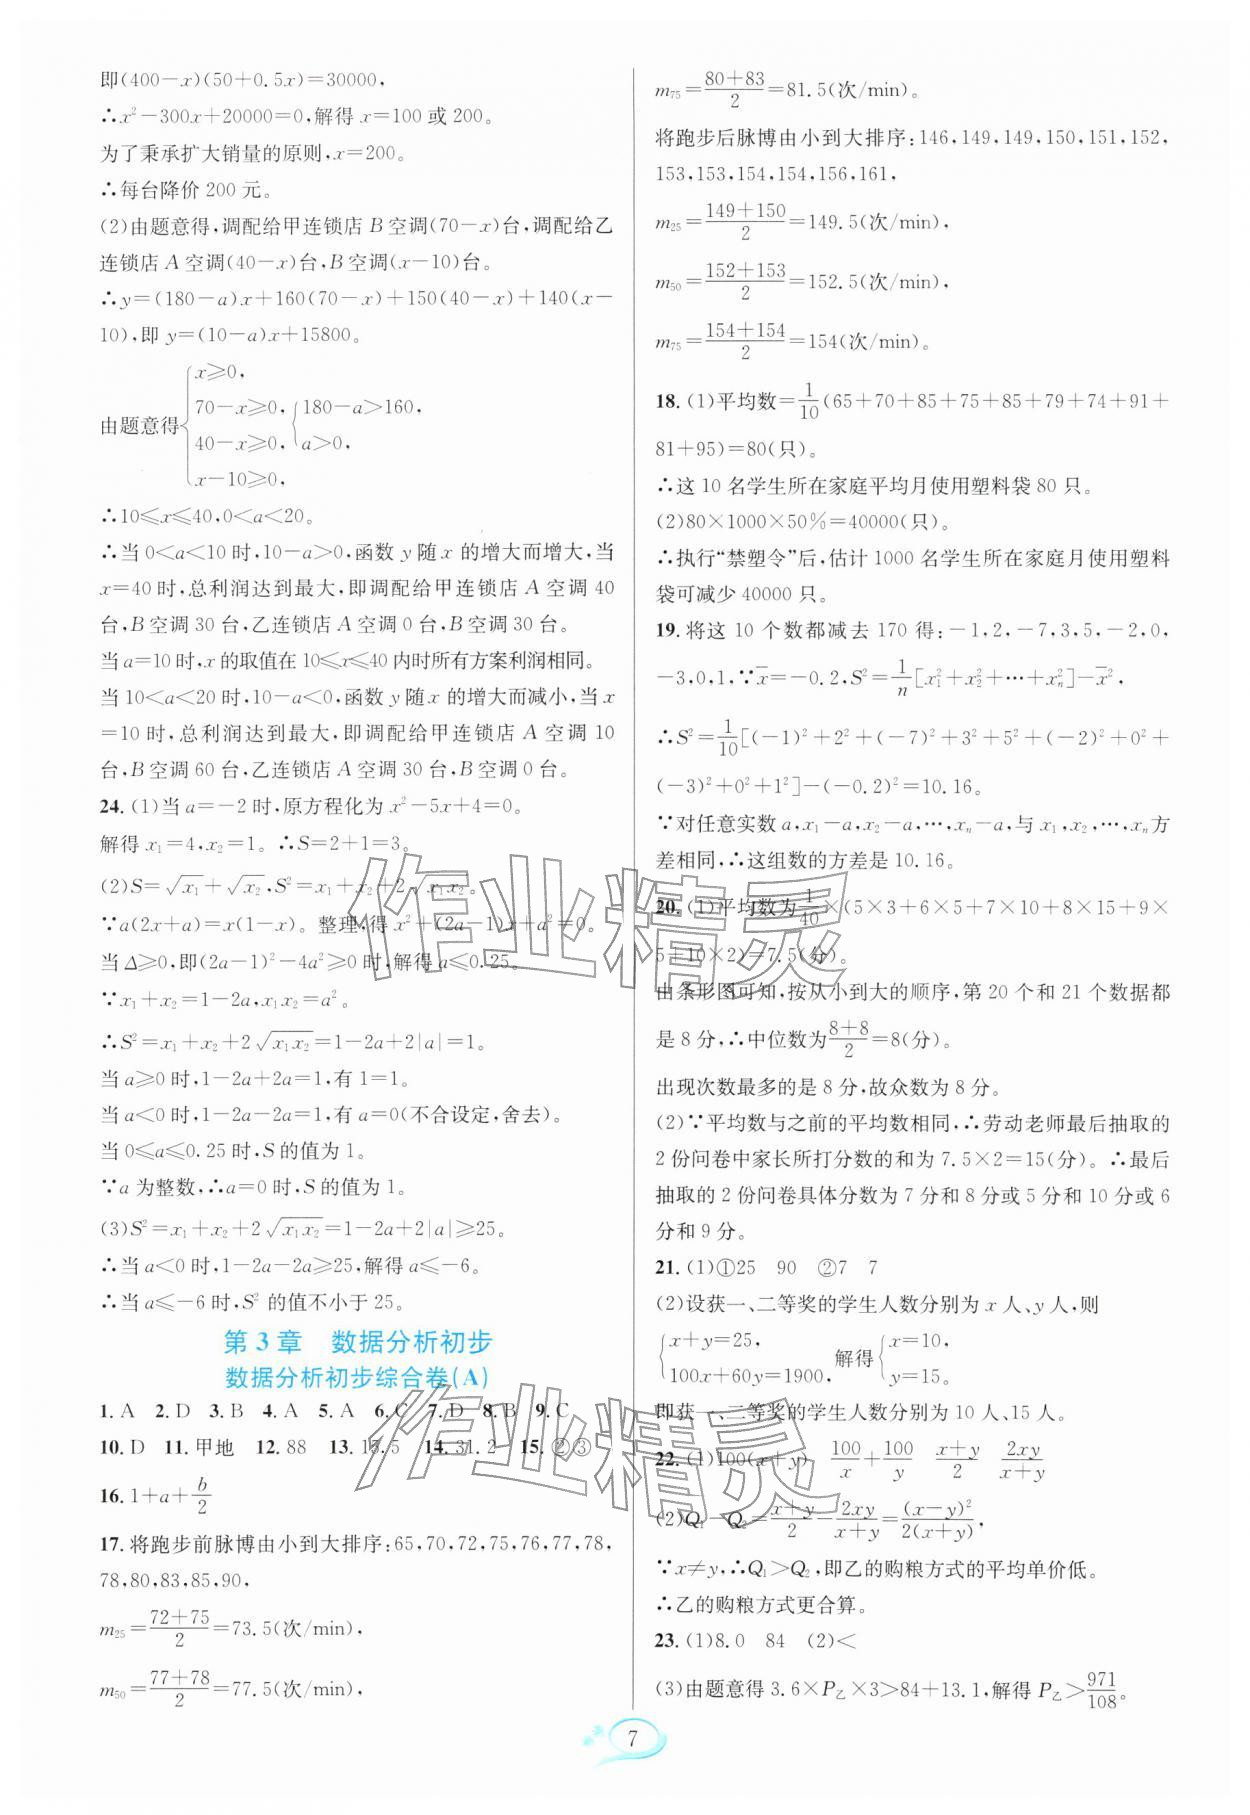 即(400－x)(50＋0.5x)＝30000，
∴x²－300x＋20000＝0，解得 x＝100 或 200。
为了秉承扩大销量的原则，x＝200。
∴每台降价 200 元。
(2)由题意得，调配给甲连锁店 B 空调(70－x)台，调配给乙
连锁店 A 空调(40－x)台，B 空调(x－10)台。
∴y＝(180－a)x＋160(70－x)＋150(40－x)＋140(x－
10)，即 y＝(10－a)x＋15800。
由题意得{x≥0，70－x≥0，40－x≥0，x－10≥0，{180－a＞160，a＞0，
∴10≤x≤40，0＜a＜20。
∴当 0＜a＜10 时，10－a＞0，函数 y 随 x 的增大而增大，当
x＝40 时，总利润达到最大，即调配给甲连锁店 A 空调 40
台，B 空调 30 台，乙连锁店 A 空调 0 台，B 空调 30 台。
当 a＝10 时，x 的取值在 10≤x≤40 内时所有方案利润相同。
当 10＜a＜20 时，10－a＜0，函数 y 随 x 的增大而减小，当 x
＝10 时，总利润达到最大，即调配给甲连锁店 A 空调 10
台，B 空调 60 台，乙连锁店 A 空调 30 台，B 空调 0 台。
24. (1)当 a＝－2 时，原方程化为 x²－5x＋4＝0。
解得 x₁＝4，x₂＝1。∴S＝2＋1＝3。
(2)S＝√x₁＋√x₂，S²＝x₁＋x₂＋2√x₁x₂。
∵a(2x＋a)＝x(1－x)。整理得 x²＋(2a－1)x＋a²＝0。
当 Δ≥0，即(2a－1)²－4a²≥0 时，解得 a≤0.25。
∵x₁＋x₂＝1－2a，x₁x₂＝a²。
∴S²＝x₁＋x₂＋2√x₁x₂＝1－2a＋2|a|＝1。
当 a≥0 时，1－2a＋2a＝1，有 1＝1。
当 a＜0 时，1－2a－2a＝1，有 a＝0(不合设定，舍去)。
当 0≤a≤0.25 时，S 的值为 1。
∵a 为整数，∴a＝0 时，S 的值为 1。
(3)S²＝x₁＋x₂＋2√x₁x₂＝1－2a＋2|a|≥25。
∴当 a＜0 时，1－2a－2a≥25，解得 a≤－6。
∴当 a≤－6 时，S² 的值不小于 25。
第 3 章 数据分析初步
数据分析初步综合卷(A)
1. A 2. D 3. B 4. A 5. A 6. C 7. D 8. B 9. C
10. D 11. 甲地 12. 88 13. 15.5 14. 31.2 15. ②③
16. 1＋a＋b/2
17. 将跑步前脉博由小到大排序：65，70，72，75，76，77，78，
78，80，83，85，90，
m₂₅＝(72＋75)/2＝73.5(次/min)，
m₅₀＝(77＋78)/2＝77.5(次/min)，
m₇₅＝(80＋83)/2＝81.5(次/min)。
将跑步后脉博由小到大排序：146，149，149，150，151，152，
153，153，154，154，156，161，
m₂₅＝(149＋150)/2＝149.5(次/min)，
m₅₀＝(152＋153)/2＝152.5(次/min)，
m₇₅＝(154＋154)/2＝154(次/min)。
18. (1)平均数＝1/10(65＋70＋85＋75＋85＋79＋74＋91＋
81＋95)＝80(只)。
∴这 10 名学生所在家庭平均月使用塑料袋 80 只。
(2)80×1000×50%＝40000(只)。
∴执行“禁塑令”后，估计 1000 名学生所在家庭月使用塑料
袋可减少 40000 只。
19. 将这 10 个数都减去 170 得：－1，2，－7，3，5，－2，0，
－3，0，1，∵x̄＝－0.2，S²＝1/n[x₁²＋x₂²＋…＋xₙ²]－x̄²，
∴S²＝1/10[(－1)²＋2²＋(－7)²＋3²＋5²＋(－2)²＋0²＋
(－3)²＋0²＋1²]－(－0.2)²＝10.16。
∵对任意实数 a，x₁－a，x₂－a，…，xₙ－a，与 x₁，x₂，…，xₙ方
差相同，∴这组数的方差是 10.16。
20. (1)平均数为1/40×(5×3＋6×5＋7×10＋8×15＋9×
5＋10×2)＝7.5(分)。
由条形图可知，按从小到大的顺序，第 20 个和 21 个数据都
是 8 分，∴中位数为(8＋8)/2＝8(分)。
出现次数最多的是 8 分，故众数为 8 分。
(2)∵平均数与之前的平均数相同，∴劳动老师最后抽取的
2 份问卷中家长所打分数的和为 7.5×2＝15(分)。∴最后
抽取的 2 份问卷具体分数为 7 分和 8 分或 5 分和 10 分或 6
分和 9 分。
21. (1)①25 90 ②7 7
(2)设获一、二等奖的学生人数分别为 x 人、y 人，则
{x＋y＝25，100x＋60y＝1900，解得{x＝10，y＝15。
即获一、二等奖的学生人数分别为 10 人、15 人。
22. (1)100(x＋y) 100/x＋100/y (x＋y)/2 2xy/(x＋y)
(2)Q₁－Q₂＝(x＋y)/2－2xy/(x＋y)＝(x－y)²/2(x＋y)，
∵x≠y，∴Q₁＞Q₂，即乙的购粮方式的平均单价低。
∴乙的购粮方式更合算。
23. (1)8.0 84 (2)＜
(3)由题意得 3.6×P乙×3＞84＋13.1，解得 P乙＞971/108。
7
作业精灵
作业精灵